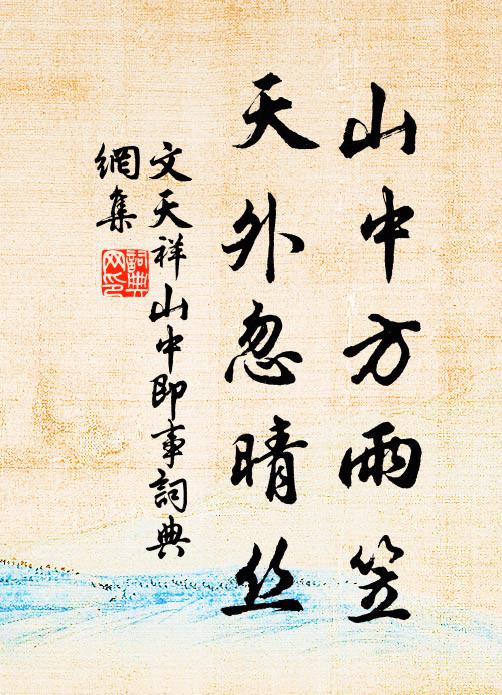 山中方雨笠
天外忽晴丝
文天祥山中即事詞典
網集
詞典
网印